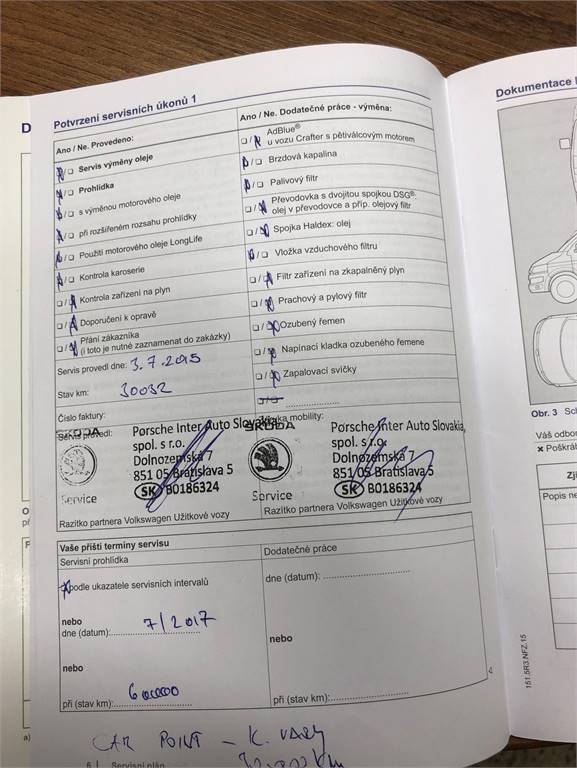 Potvrzení servisních úkonů 1
Ano / Ne. Provedeno:
Servis výměny oleje
Prohlídka
s výměnou motorového oleje
při rozšířeném rozsahu prohlídky
Použití motorového oleje LongLife
Kontrola karoserie
Kontrola zařízení na plyn
Doporučení k opravě
Přání zákazníka
(i toto je nutné zaznamenat do zakázky)
Servis provedl dne: 3.7.2015
Stav km: 30032
Číslo faktury:
Servis provedl:
ŠKODA
Porsche Inter Auto Slovakia,
spol. s r.o.
Dolnozemská 7
851 05 Bratislava 5
SK B0186324
Service
Razítko partnera Volkswagen Užitkové vozy
Ano / Ne. Dodatečné práce - výměna:
AdBlue®
u vozu Crafter s pětiválcovým motorem
Brzdová kapalina
Palivový filtr
Převodovka s dvojitou spojkou DSG®:
olej v převodovce a příp. olejový filtr
Spojka Haldex: olej
Vložka vzduchového filtru
Filtr zařízení na zkapalněný plyn
Prachový a pylový filtr
Ozubený řemen
Napínací kladka ozubeného řemene
Zapalovací svíčky
mobility:
ŠKODA
Porsche Inter Auto Slovakia,
spol. s r.o.
Dolnozemská 7
851 05 Bratislava 5
SK B0186324
Service
Razítko partnera Volkswagen Užitkové vozy
Vaše příští termíny servisu
Servisní prohlídka
podle ukazatele servisních intervalů
nebo
dne (datum): 7/2017
nebo
při (stav km): 60000
Dodatečné práce
dne (datum):
nebo
při (stav km):
CAR POINT - K. VARY
6 Servisní plán
Dokumentace
Obr. 3
Váš odbor
Zji
Popis ne
151.5R3.NFZ.15
a)